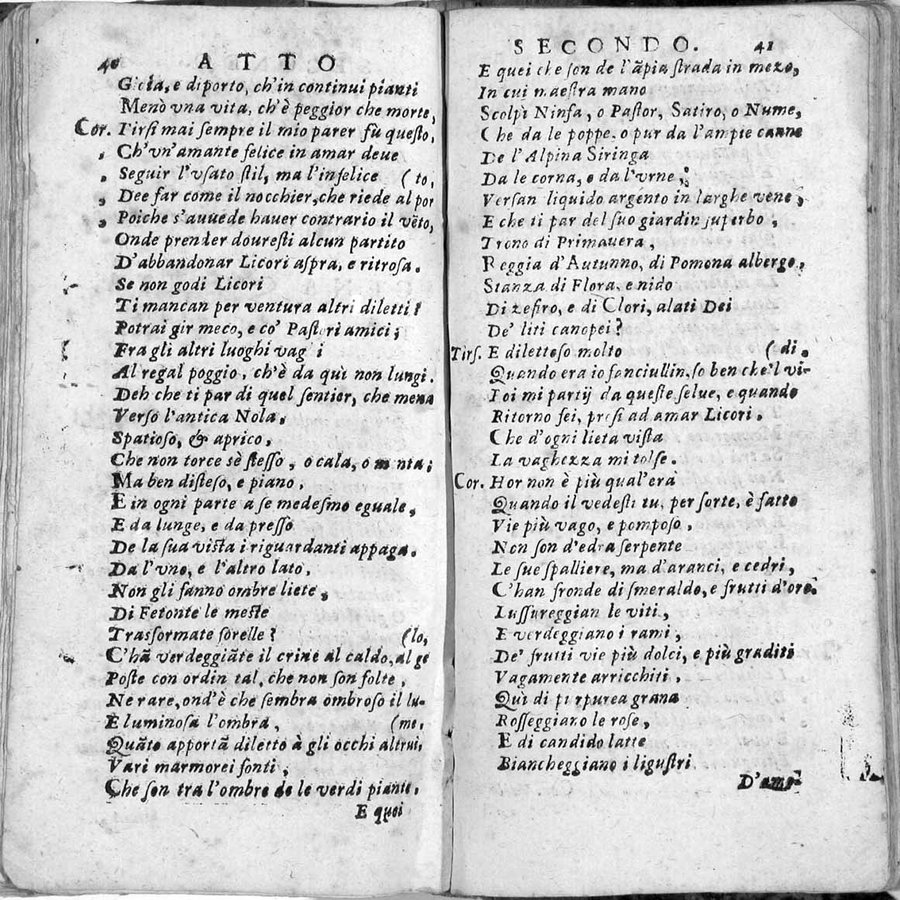 40 ATTO
Gioia, e diporto, ch'in continui pianti
Menò vna vita, ch'è peggior che morte,
Cor. Tirsi mai sempre il mio parer fù questo,
, Ch'vn'amante felice in amar deue
, Seguir l'vsato stil, ma l'infelice (to,
, Dee far come il nocchier, che riede al por
, Poiche s'auuede hauer contrario il vēto,
Onde prender douresti alcun partito
D'abbandonar Licori aspra, e ritrosa.
Se non godi Licori
Ti mancan per ventura altri diletti?
Potrai gir meco, e co' Pastori amici;
Fra gli altri luoghi vaghi
Al regal poggio, ch'è da quì non lungi.
Deh che ti par di quel sentier, che mena
Verso l'antica Nola,
Spatioso, & aprico,
Che non torce sè stesso, o cala, o monta;
Ma ben disteso, e piano,
E in ogni parte a se medesmo eguale,
E da lunge, e da presso
De la sua vista i riguardanti appaga.
Da l'vno, e l'altro lato,
Non gli fanno ombre liete,
Di Fetonte le meste
Trasformate sorelle? (lo,
C'hā verdeggiāte il crine al caldo, al ge
Poste con ordin tal, che non son folte,
Ne rare, ond'è che sembra ombroso il lu-
E luminosa l'ombra, (me,
Quāto apportā diletto à gli occhi altrui,
Vari marmorei fonti,
Che son tra l'ombre de le verdi piante,
E quei
SECONDO. 41
E quei che son de l'āpia strada in mezo,
In cui maestra mano
Scolpì Ninfa, o Pastor, Satiro, o Nume,
Che da le poppe, o pur da l'ampie canne
De l'Alpina Siringa
Da le corna, o da l'vrne,
Versan liquido argento in larghe vene,
E che ti par del suo giardin superbo,
Trono di Primauera,
Reggia d'Autunno, di Pomona albergo,
Stanza di Flora, e nido
Di zefiro, e di Clori, alati Dei
De' liti canopei?
Tirs. E diletteso molto (di,
Quando era io fanciullin, so ben che'l vi-
Poi mi partij da queste selue, e quando
Ritorno fei, presi ad amar Licori,
Che d'ogni lieta vista
La vaghezza mi tolse.
Cor. Hor non è più qual'era
Quando il vedesti tu, per sorte, è fatto
Vie più vago, e pomposo,
Non son d'edra serpente
Le sue spalliere, ma d'aranci, e cedri,
C'han fronde di smeraldo, e frutti d'oro.
Lussureggian le viti,
E verdeggiano i rami,
De' frutti vie più dolci, e più graditi
Vagamente arricchiti,
Quì di purpurea grana
Rosseggiano le rose,
E di candido latte
Biancheggiano i ligustri